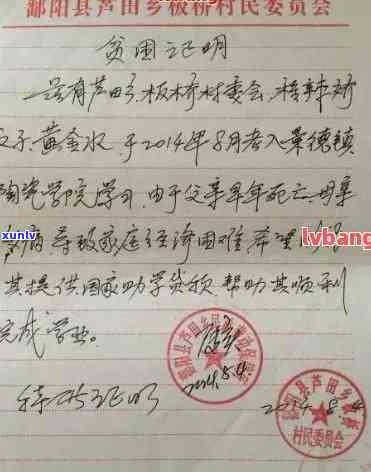 鄱阳县芦田乡板桥村民委员会
贫困证明
兹有芦田乡板桥村委会
女子黄金水于2014年8月考入景德镇
陶瓷学院学习,由于父亲早年死亡,母亲
病,导致家庭经济困难,希望
其提供国家助学贷款,帮助其顺利
完成学业。
特此证明
2014.8.4.
2014.8.4
鄱阳县芦田乡
鄱阳县芦田乡板桥
村民委员会
xunlv
lvbang